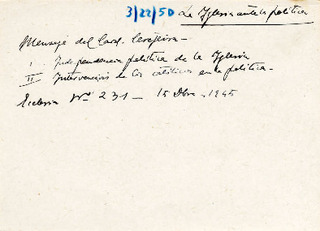 3/22/50 La Iglesia ante la política
Mensaje del Card. Cerejeira -
I. Independencia política de la Iglesia
II Intervención de los católicos en la política -
Ecclesia Nº 231 - 15 Dbre. - 1945